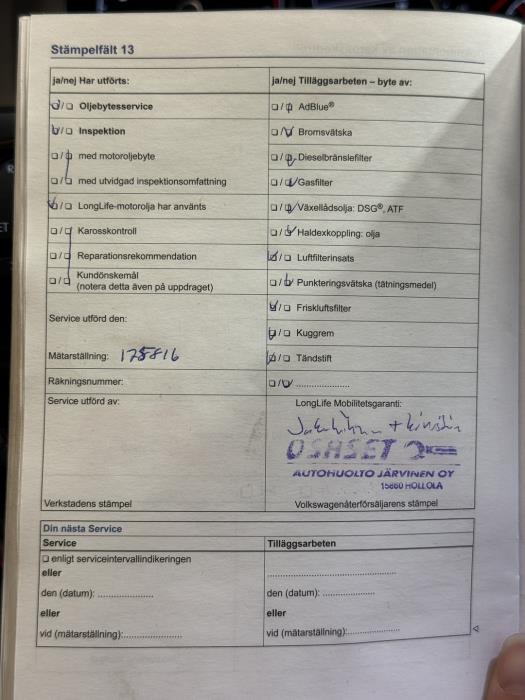 Stämpelfält 13
ja/nej Har utförts:
☑/☐ Oljebytesservice
☑/☐ Inspektion
☐/☑ med motoroljebyte
☐/☑ med utvidgad inspektionsomfattning
☑/☐ LongLife-motorolja har använts
☐/☑ Karosskontroll
☐/☑ Reparationsrekommendation
☐/☑ Kundönskemål
(notera detta även på uppdraget)
Service utförd den:
Mätarställning: 175816
Räkningsnummer:
Service utförd av:
Verkstadens stämpel
ja/nej Tilläggsarbeten – byte av:
☐/☑ AdBlue®
☐/☑ Bromsvätska
☐/☑ Dieselbränslefilter
☐/☑ Gasfilter
☐/☑ Växellådsolja: DSG®, ATF
☐/☑ Haldexkoppling: olja
☑/☐ Luftfilterinsats
☐/☑ Punkteringsvätska (tätningsmedel)
☑/☐ Friskluftsfilter
☑/☐ Kuggrem
☑/☐ Tändstift
☐/☑ ....................
LongLife Mobilitetsgaranti:
AUTOHUOLTO JÄRVINEN OY
15860 HOLLOLA
Volkswagenåterförsäljarens stämpel
Din nästa Service
Service
☐ enligt serviceintervallindikeringen
eller
den (datum): ....................
eller
vid (mätarställning):....................
Tilläggsarbeten
........................................
den (datum): ....................
eller
vid (mätarställning):....................